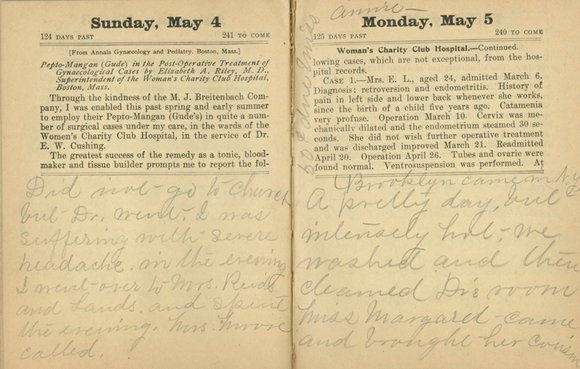 Sunday, May 4
124 DAYS PAST 241 TO COME
[From Annals Gynæcology and Pediatry. Boston, Mass.]
Pepto-Mangan (Gude) in the Post-Operative Treatment of
Gynæcological Cases by Elizabeth A. Riley, M. D.,
Superintendent of the Woman's Charity Club Hospital,
Boston, Mass.
Through the kindness of the M. J. Breitenbach Com-
pany, I was enabled this past spring and early summer
to employ their Pepto-Mangan (Gude's) in quite a num-
ber of surgical cases under my care, in the wards of the
Women's Charity Club Hospital, in the service of Dr.
E. W. Cushing.
The greatest success of the remedy as a tonic, blood-
maker and tissue builder prompts me to report the fol-
Did not go to church
but Dr. went. I was
suffering with severe
headache. in the evening
I went over to Mrs.
and Lands. and spent
the evening. Mrs. Moore
called.
Annie
Monday, May 5
125 DAYS PAST 240 TO COME
Woman's Charity Club Hospital.—Continued.
lowing cases, which are not exceptional, from the hos-
pital records.
CASE 1.—Mrs. E. L., aged 24, admitted March 6.
Diagnosis: retroversion and endometritis. History of
pain in left side and lower back whenever she works,
since the birth of a child five years ago. Catamenia
very profuse. Operation March 10. Cervix was me-
chanically dilated and the endometrium steamed 30 sec-
onds. She did not wish further operative treatment
and was discharged improved March 21. Readmitted
April 20. Operation April 26. Tubes and ovarie were
found normal. Ventrosuspension was performed. At
Brooklyn came in N.Y
A pretty day, but
intensely hot. we
washed and then
cleaned Drs room
Miss Margaret came
and brought her cousin